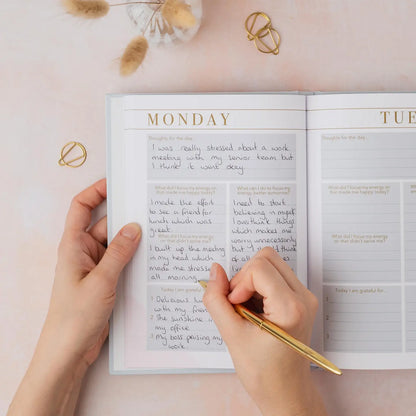 MONDAY
Thoughts for the day...
I was really stressed about a work
meeting with my senior team but
I think it went okay.
What did I focus my energy on
that made me happy today?
I made the effort
to see a friend for
lunch which was
great.
What can I do to focus my
energy better tomorrow?
I need to start
believing in myself
I overthink things
which makes me
worry unnecessarily
but I
all
What did I focus my energy on
that didn't serve me?
I built up the meeting
in my head which
made me stressed
all morning
Today I am grateful for...
1 Delicious
with my friend
2 She sun
my office
3 My boss praising my
work.
TUE
Thoughts for the day...
What did I focus my energy on
that made me happy today?
What did I focus my energy
on that didn't serve me?
Today I am grateful for...
1
2
3